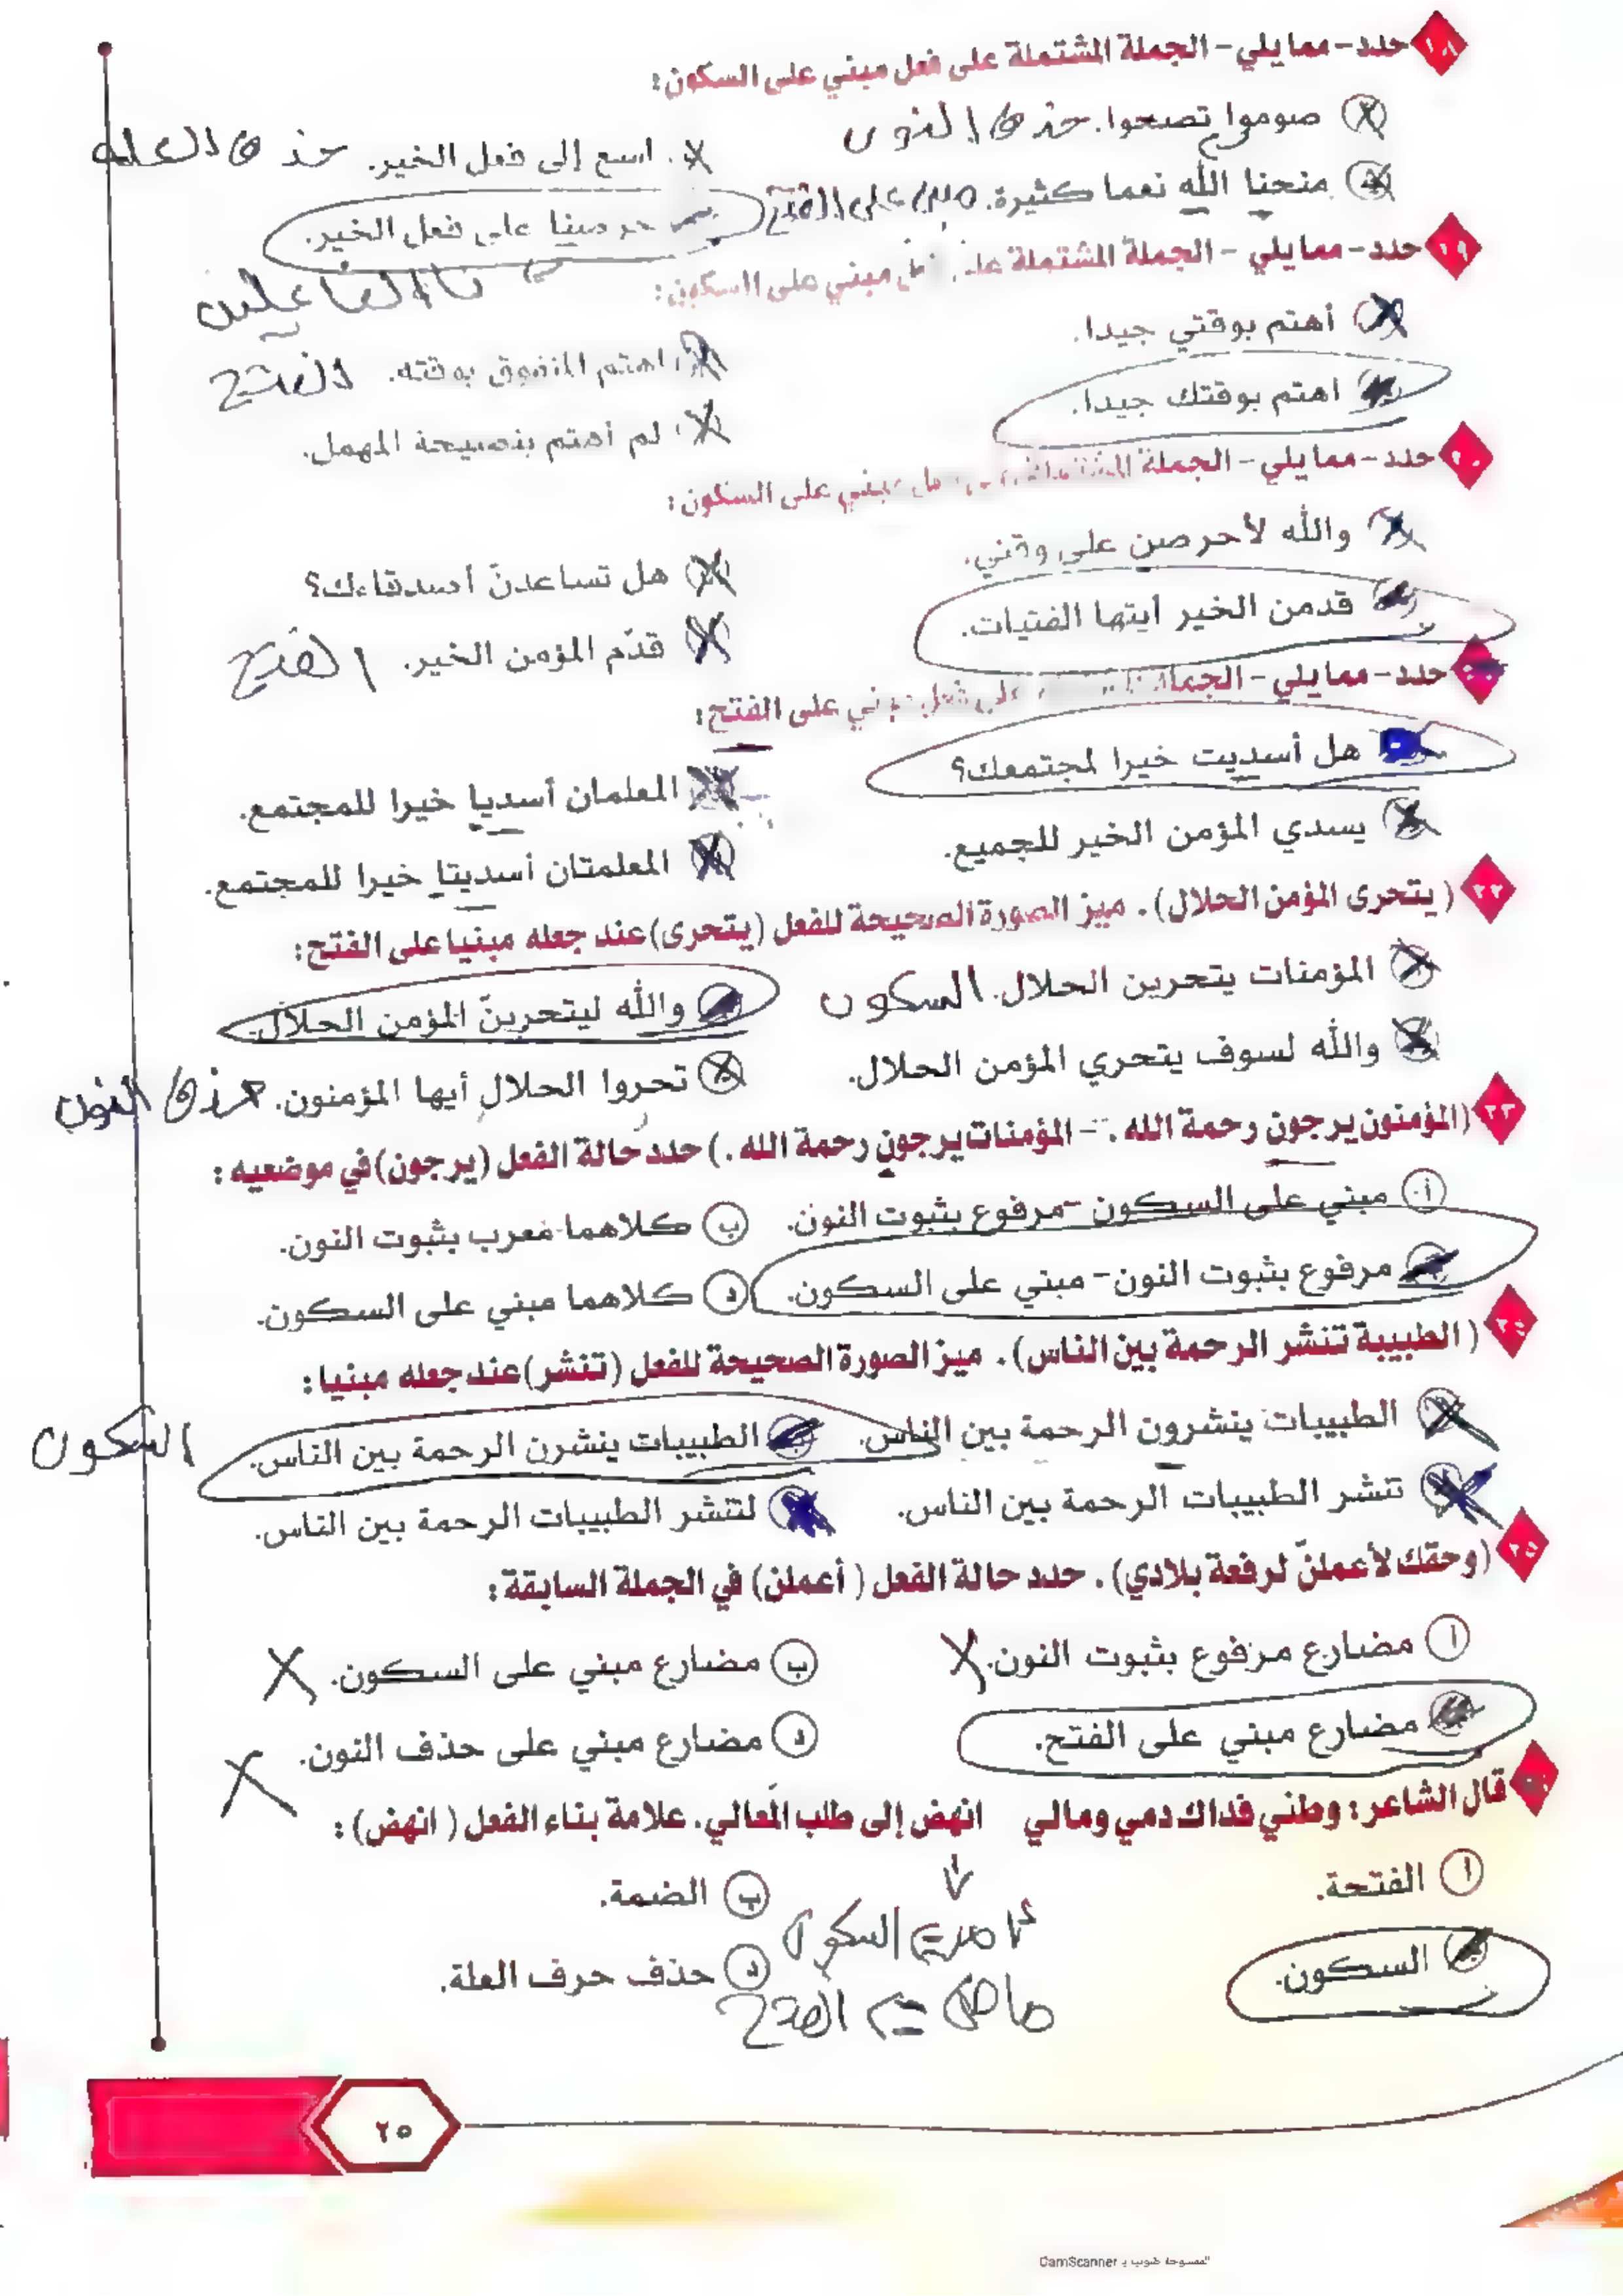 ١٨ حدد - مما يلي - الجملة المشتملة على فعل مبني على السكون :
صوموا تصحوا. حذف النون
اسع إلى فعل الخير. حذف العلة
منحنا الله نعما كثيرة. مبني على الفتح
حرصنا على فعل الخير.
نا الفاعلين
١٩ حدد - مما يلي - الجملة المشتملة على فعل مبني على السكون :
أهتم بوقتي جيدا.
اهتم المتفوق بوقته. الفتح
اهتم بوقتك جيدا.
لم أهتم بنصيحة المهمل.
٢٠ حدد - مما يلي - الجملة المشتملة على فعل مبني على السكون :
والله لأحرصن على وقتي.
هل تساعدنّ أصدقاءك؟
قدمن الخير أيتها الفتيات.
قدّم المؤمن الخير. الفتح
حدد - مما يلي - الجملة على فعل مبني على الفتح :
هل أسديت خيرا لمجتمعك؟
المعلمان أسديا خيرا للمجتمع.
يسدي المؤمن الخير للجميع.
المعلمتان أسديتا خيرا للمجتمع.
٢٢ (يتحرى المؤمن الحلال) . ميز الصورة الصحيحة للفعل (يتحرى) عند جعله مبنيا على الفتح :
المؤمنات يتحرين الحلال. السكون
والله ليتحرينّ المؤمن الحلال.
والله لسوف يتحري المؤمن الحلال.
تحروا الحلال أيها المؤمنون. حذف النون
٢٣ (المؤمنون يرجون رحمة الله . - المؤمنات يرجون رحمة الله .) حدد حالة الفعل (يرجون) في موضعيه :
أ مبني على السكون - مرفوع بثبوت النون.
ب كلاهما معرب بثبوت النون.
مرفوع بثبوت النون - مبني على السكون.
د كلاهما مبني على السكون.
٢٤ ( الطبيبة تنشر الرحمة بين الناس) . ميز الصورة الصحيحة للفعل (تنشر) عند جعله مبنيا :
الطبيبات ينشرون الرحمة بين الناس.
الطبيبات ينشرن الرحمة بين الناس. السكون
تنشر الطبيبات الرحمة بين الناس.
لتنشر الطبيبات الرحمة بين الناس.
٢٥ (وحقك لأعملنّ لرفعة بلادي) . حدد حالة الفعل ( أعملن) في الجملة السابقة :
أ مضارع مرفوع بثبوت النون.
ب مضارع مبني على السكون.
مضارع مبني على الفتح.
د مضارع مبني على حذف النون.
قال الشاعر : وطني فداك دمي ومالي انهض إلى طلب المعالي . علامة بناء الفعل ( انهض) :
أ الفتحة.
ب الضمة.
أمر = السكون
السكون.
د حذف حرف العلة.
ماض = الفتح
٢٥
الممسوحة ضوئيا بـ CamScanner